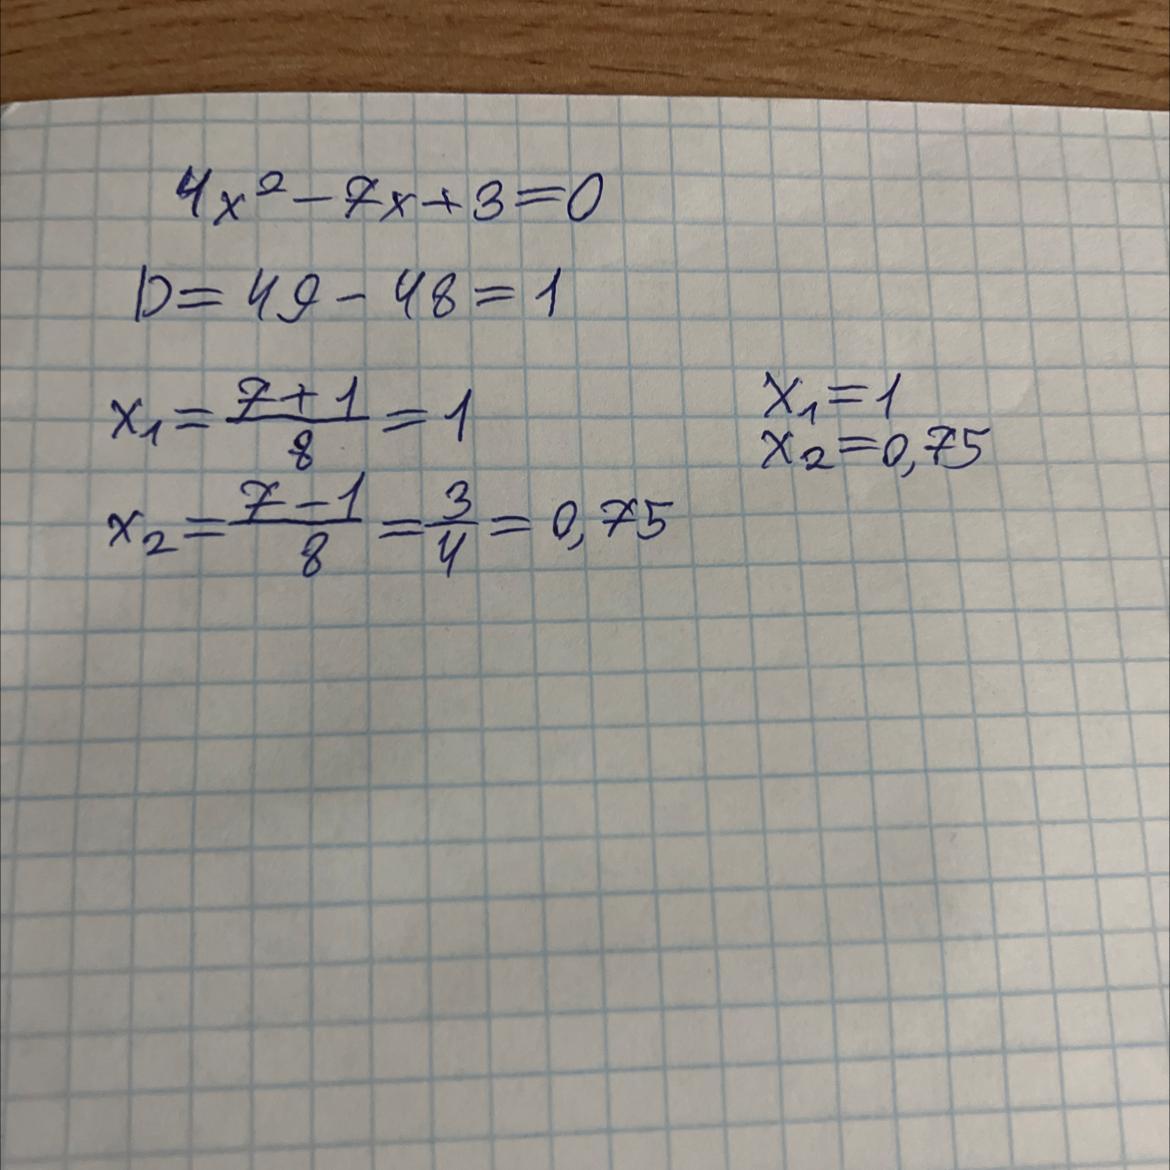 4x² - 7x + 3 = 0
D = 49 - 48 = 1
x₁ = (7 + 1)/8 = 1
x₂ = (7 - 1)/8 = 3/4 = 0,75
x₁ = 1
x₂ = 0,75